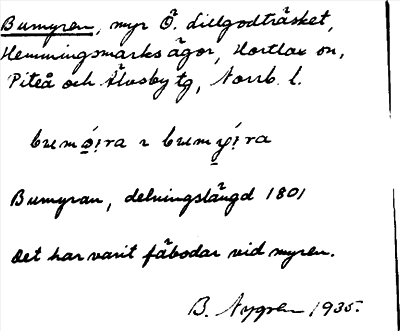 Bumyren, myr Ö. Lillgodträsket,
Hemmingsmarks ägor, Hortlax sn,
Piteå och Älvsby tg, Norrb. l.
bumǿ:ra ɿ bumý:ra
Bumyran, delningslängd 1801
Det har varit fäbodar vid myren.
B. Nygren 1935.